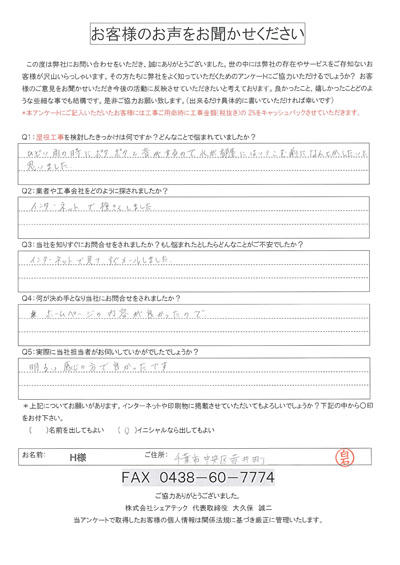 お客様のお声をお聞かせください
この度は弊社にお問い合わせをいただき、誠にありがとうございました。世の中には弊社の存在やサービスをご存知ないお
客様が沢山いらっしゃいます。その方たちに弊社をよく知っていただくためのアンケートにご協力いただけるでしょうか？ お客
様のご意見をお聞かせいただき今後の活動に反映させていただきたいと考えております。良かったこと、嬉しかったことどのよ
うな些細な事でも結構です。是非ご協力お願い致します。（出来るだけ具体的に書いていただければ幸いです）
*本アンケートにご記入いただいたお客様には工事ご用命時に工事金額(税抜き)の 2%をキャッシュバックさせていただきます。
Q1：屋根工事を検討したきっかけは何ですか？どんなことで悩まれていましたか？
ひどい雨の時にポタポタと音がするので、水が部屋に
思いました
Q2：業者や工事会社をどのように探されましたか？
インターネットで検さくしました
Q3：当社を知りすぐにお問合せをされましたか？もし悩まれたとしたらどんなことがご不安でしたか？
インターネットで見てすぐメールしました
Q4：何が決め手となり当社にお問合せをされましたか？
ホームページの内容が良かったので
Q5：実際に当社担当者がお伺いしていかがでしたでしょうか？
明るい感じの方で良かったです
＊上記についてお願いがあります。インターネットや印刷物に掲載させていただいてもよろしいでしょうか？下記の中から〇印
をお付下さい。
（　）名前を出してもよい　（〇）イニシャルなら出してもよい
お名前：　H様　ご住所：　千葉市中央区　白石
FAX 0438-60-7774
ご協力ありがとうございました。
株式会社シェアテック 代表取締役 大久保 誠二
当アンケートで取得したお客様の個人情報は関係法規に基づき厳正に管理いたします。